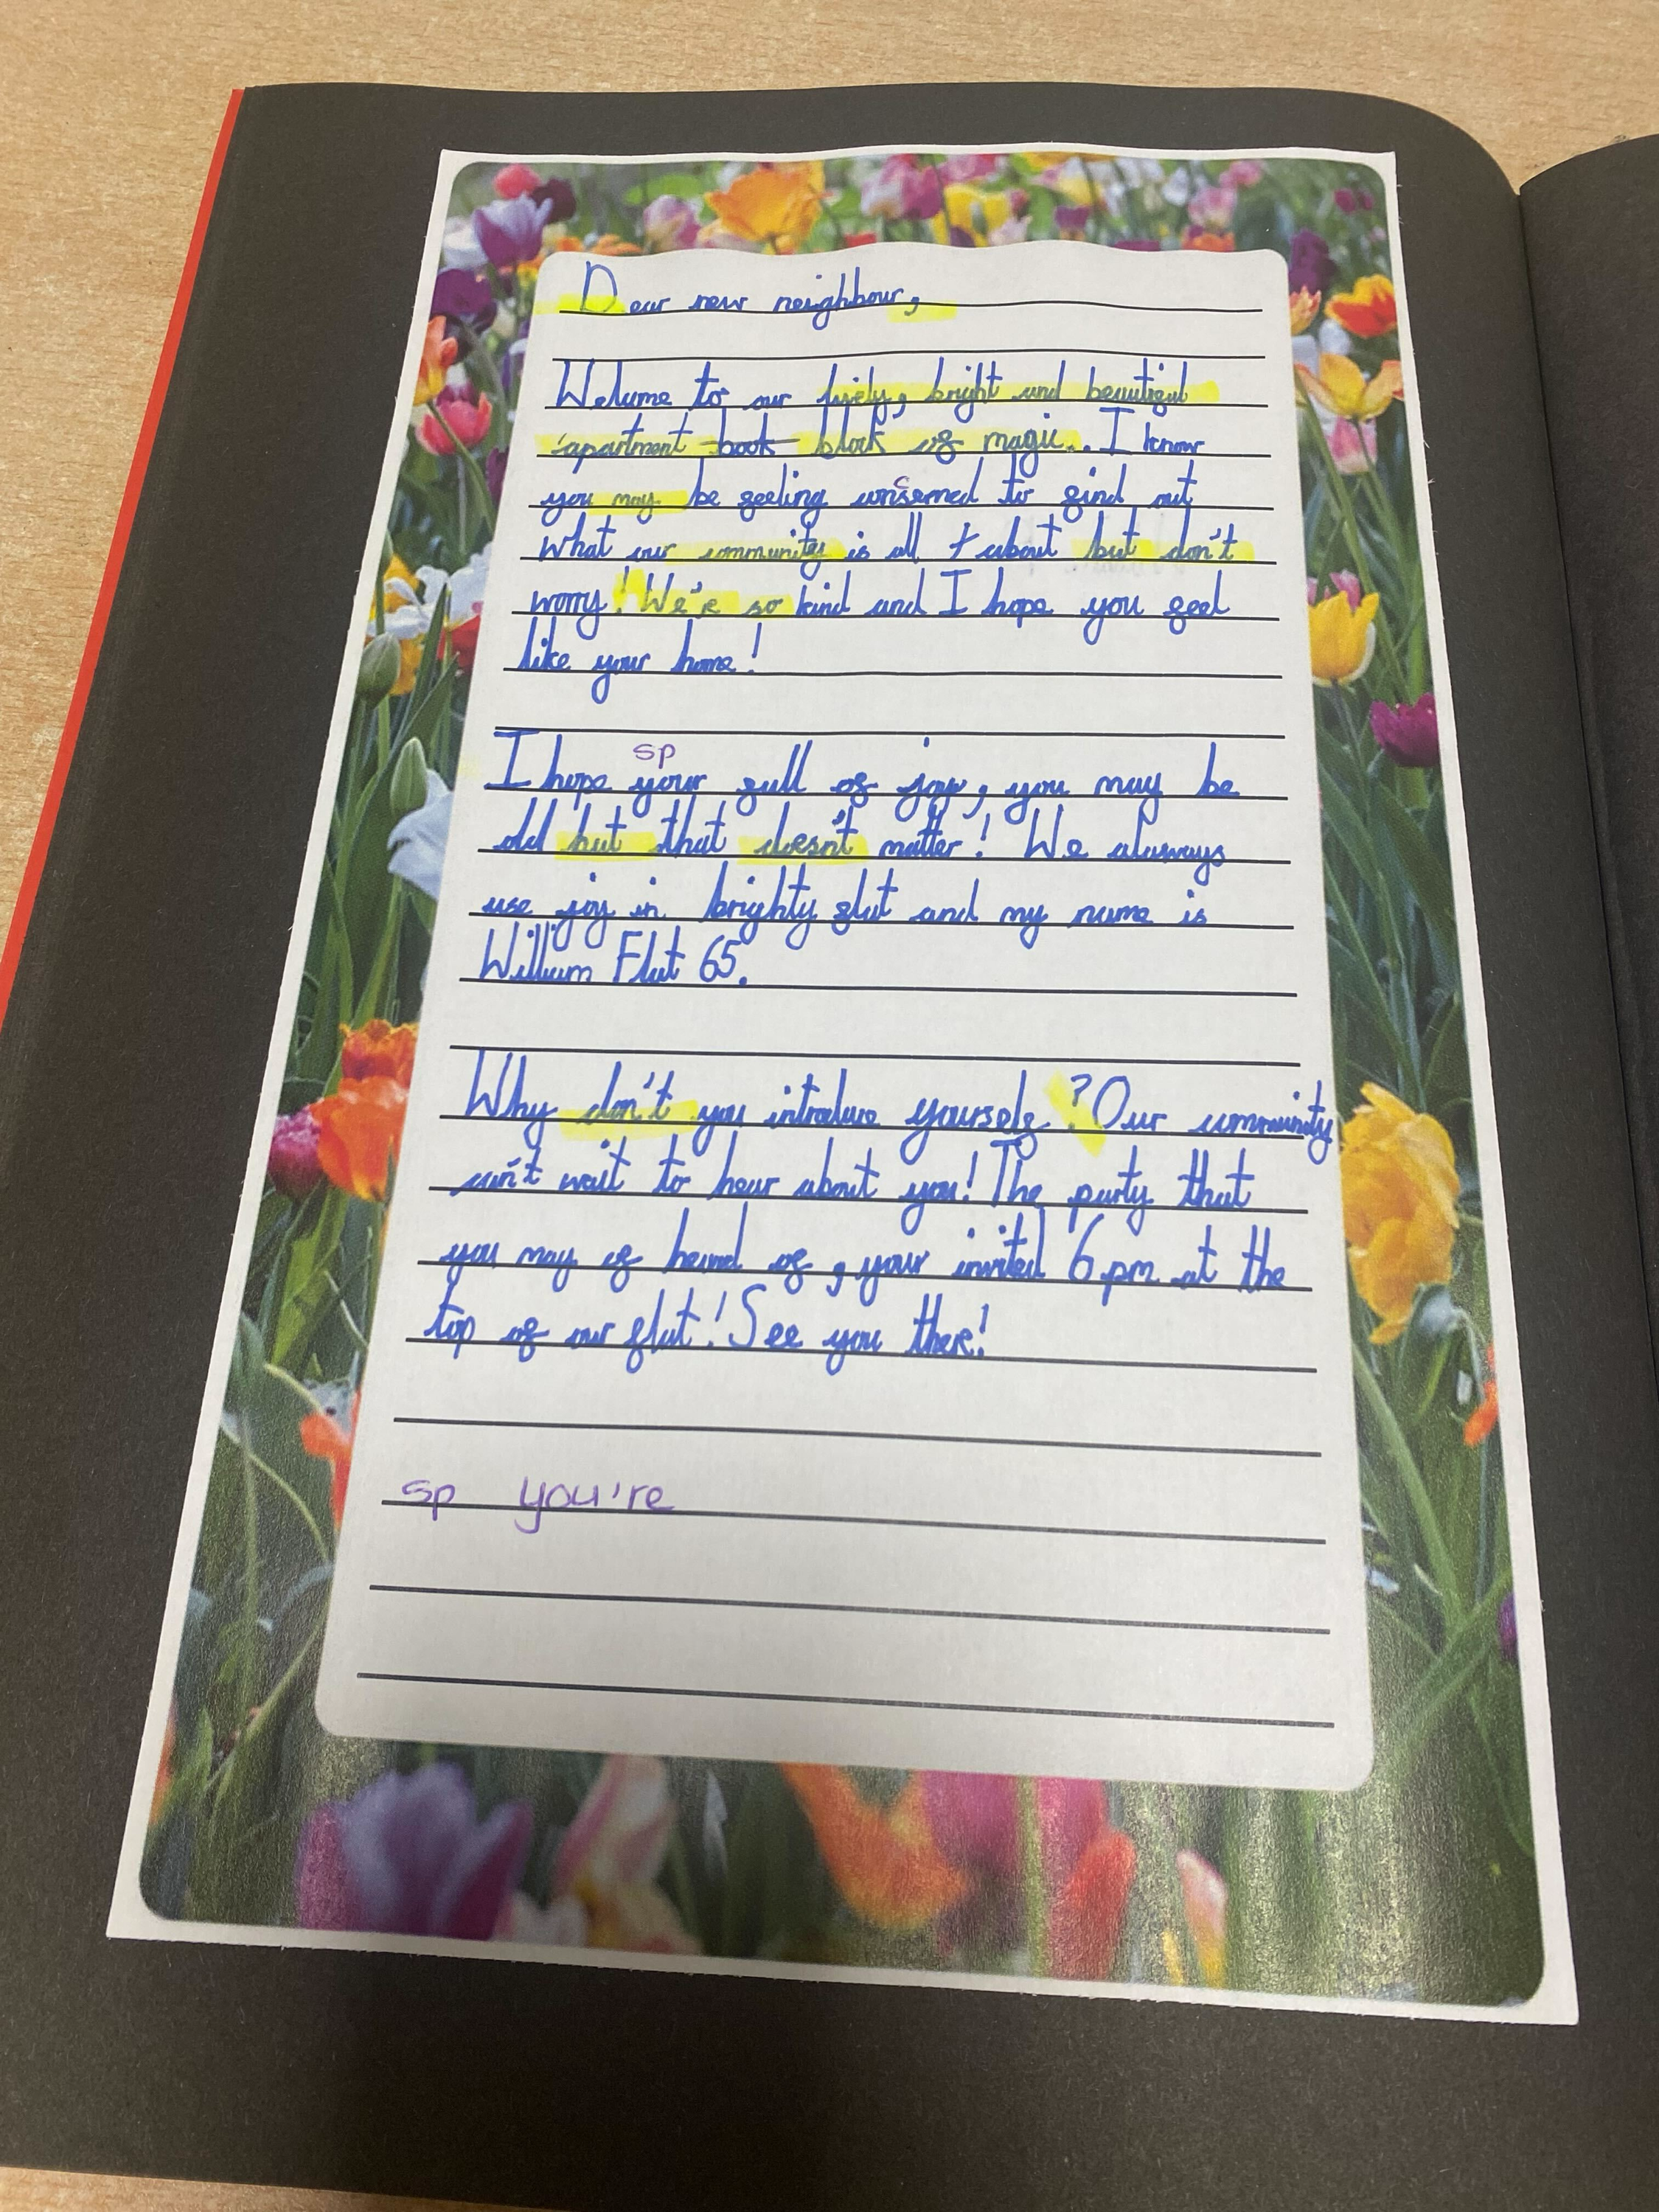 Dear new neighbour,
Welcome to our lively, bright and beautiful
apartment book block of magic. I know
you may be feeling conserned to find out
c
what our community is all t about but don't
worry! We're so kind and I hope you feel
like your home!
sp
I hope your full of joy, you may be
old but that doesn't matter! We alaways
use joy in brighty flat and my name is
William Flat 65.
Why don't you introduce yourself? Our community
can't wait to hear about you! The party that
you may of heard of, your invited 6pm at the
top of our flat! See you there!
sp you're